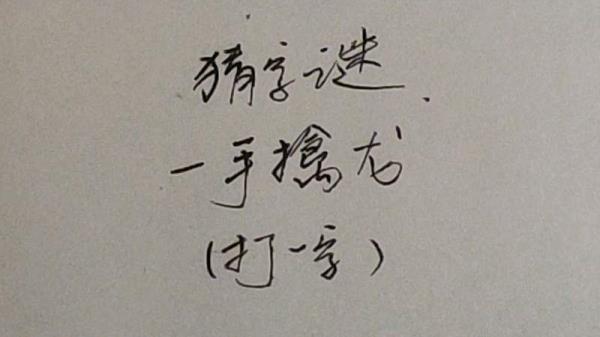 猜字谜.
一手擒龙
(打一字)